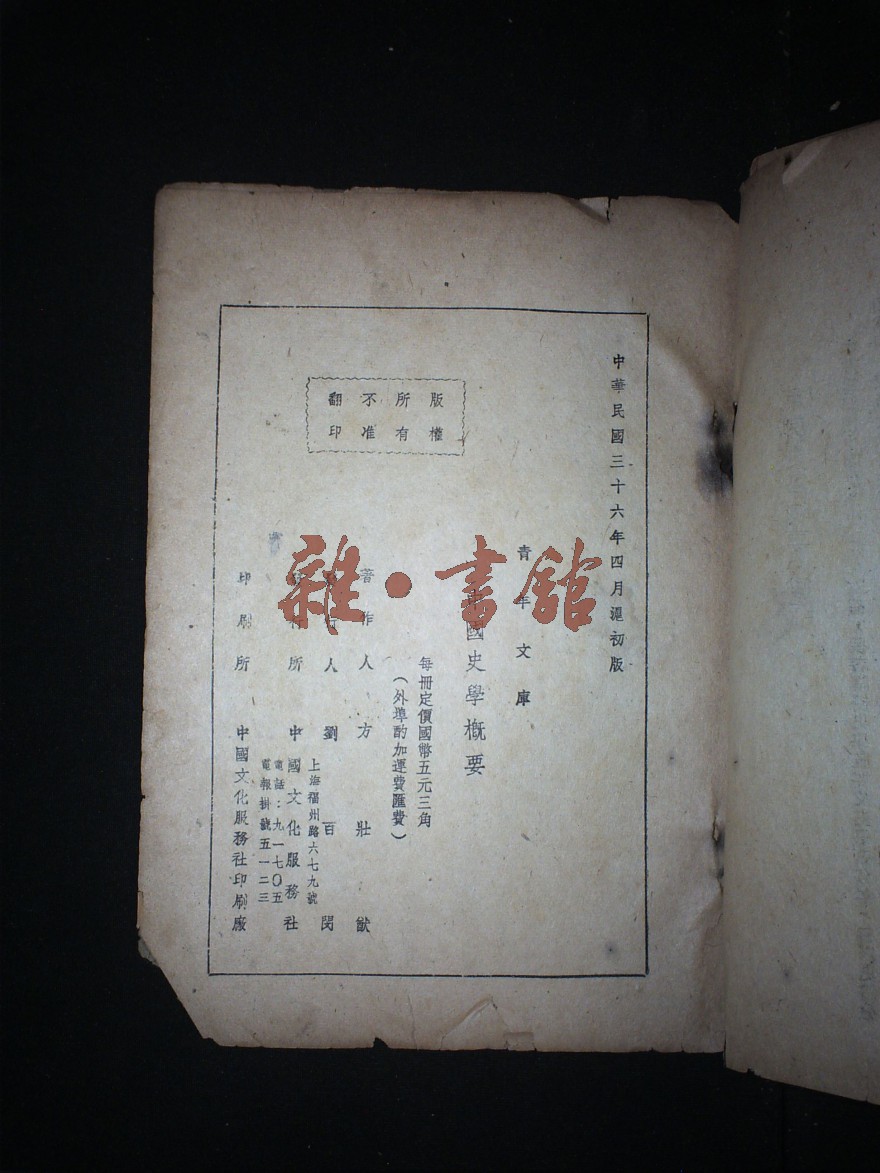 中華民國三十六年四月滬初版
青年文庫
國史學概要
每冊定價國幣五元三角
(外埠酌加運費匯費)
版權所有
不准翻印
著作人 方壯猷
人 劉百閔
所 中國文化服務社
上海福州路六七九號
電話:九一七〇五
電報掛號五一二三
印刷所 中國文化服務社印刷廠
雜·書館